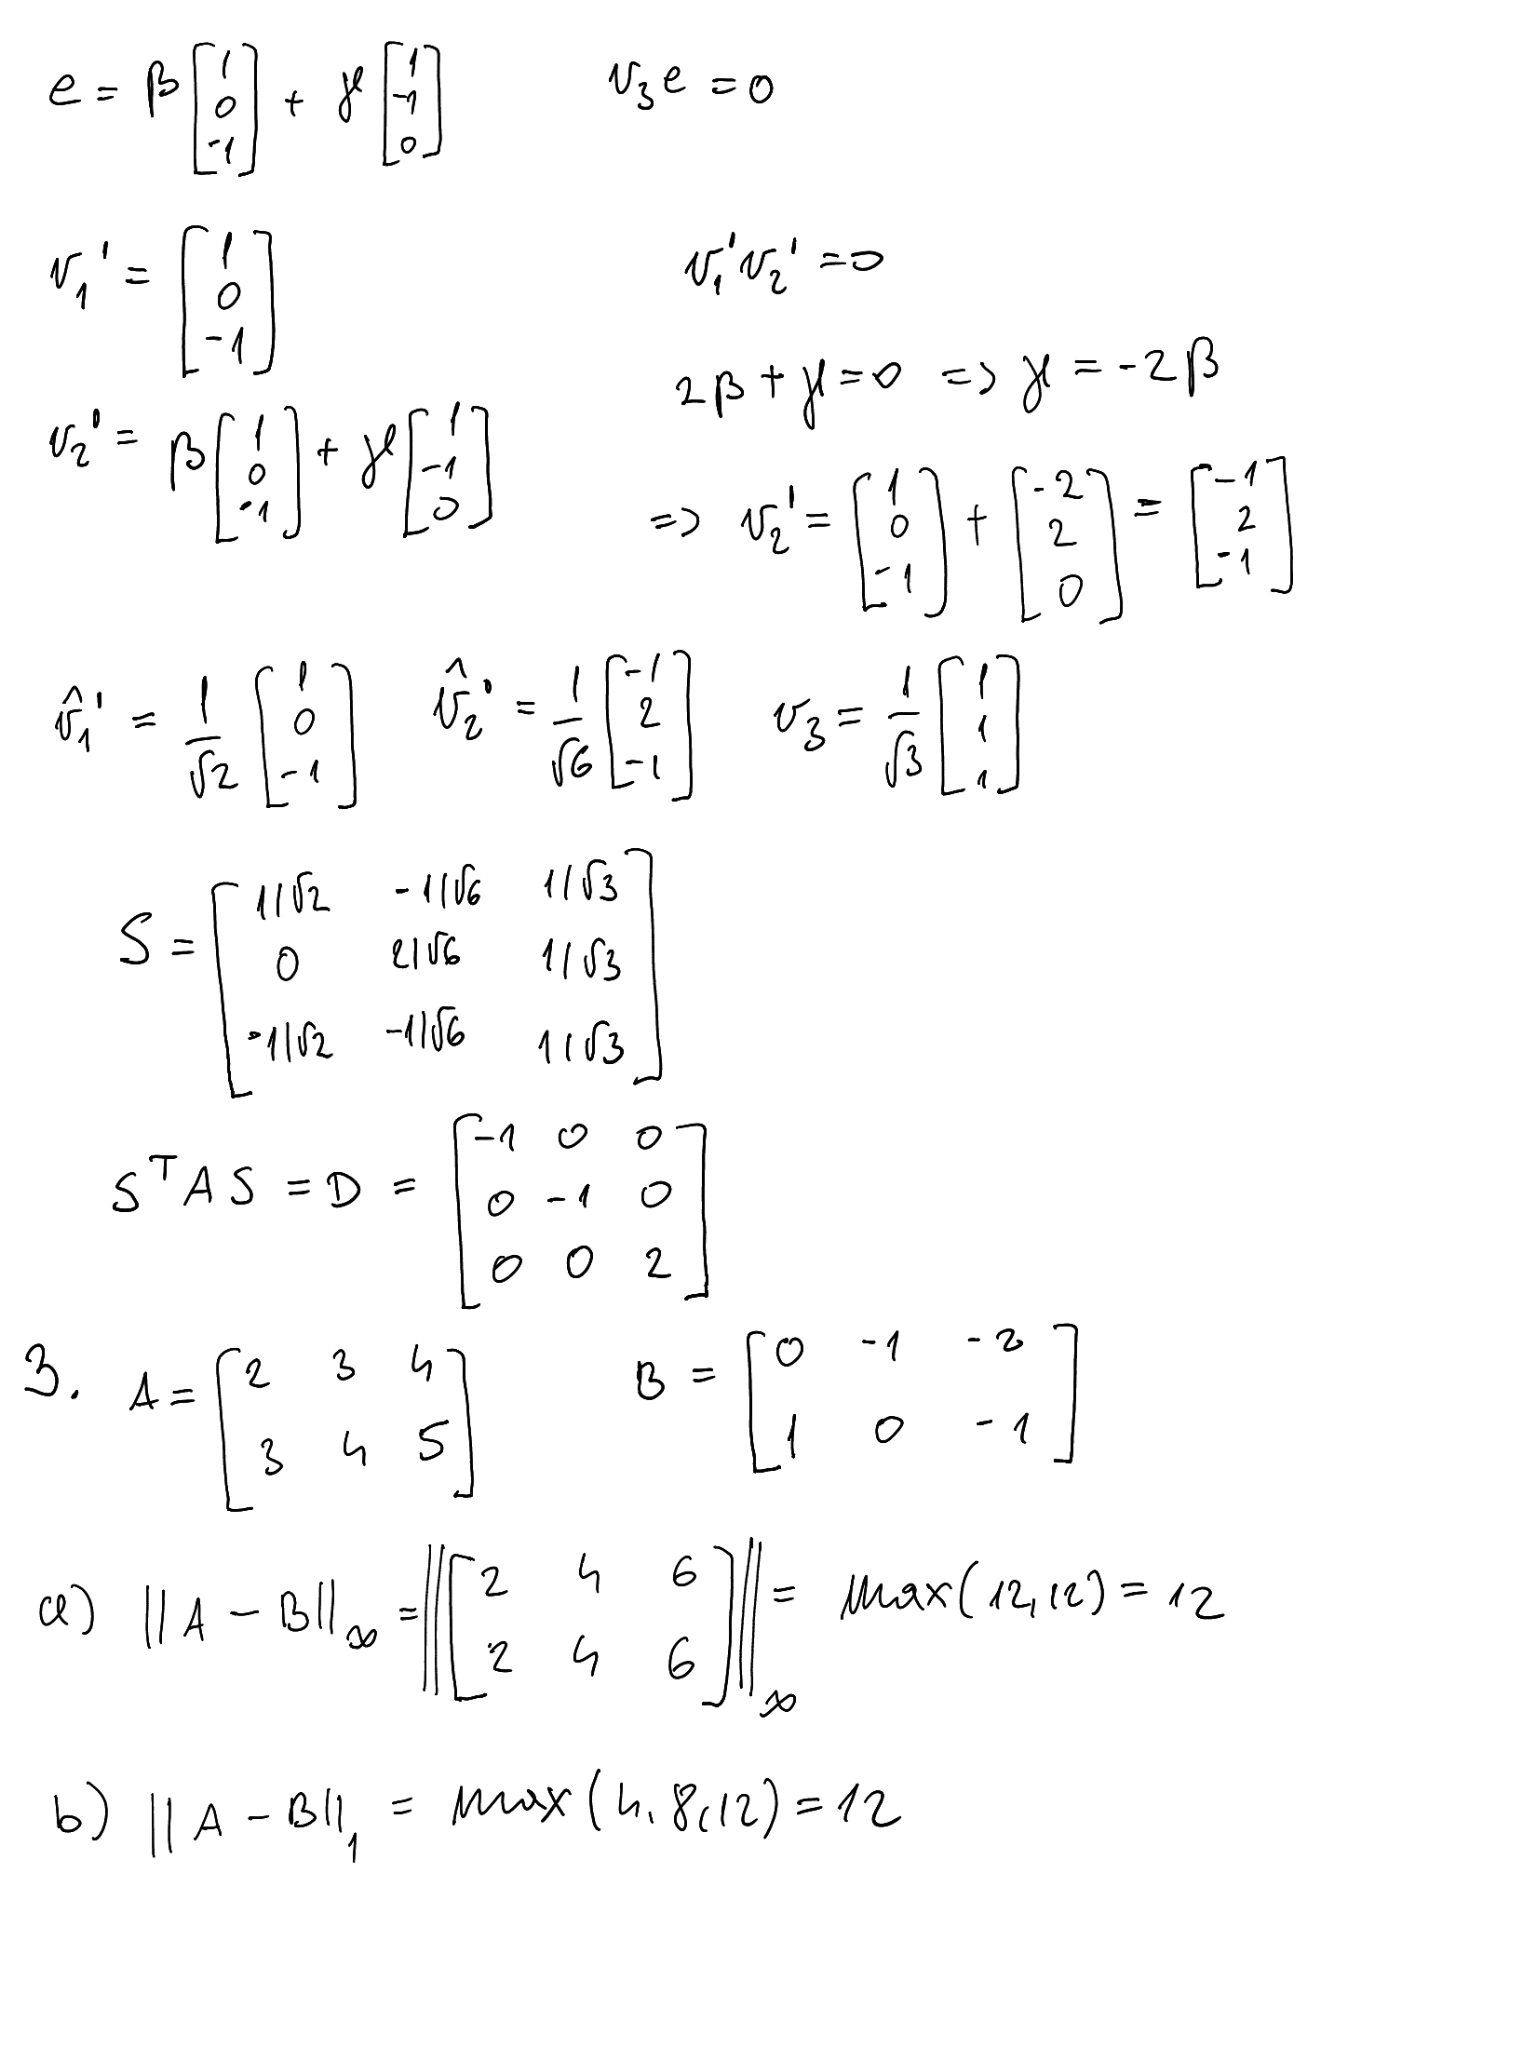 e = β [1 0 -1] + γ [1 -1 0]    v₃e = 0
v₁' = [1 0 -1]    v₁'v₂' = 0
2β + γ = 0 => γ = -2β
v₂' = β [1 0 -1] + γ [1 -1 0]
=> v₂' = [1 0 -1] + [-2 2 0] = [-1 2 -1]
v̂₁' = 1/√2 [1 0 -1]    v̂₂' = 1/√6 [-1 2 -1]    v₃ = 1/√3 [1 1 1]
S = [1/√2 -1/√6 1/√3
0 2/√6 1/√3
-1/√2 -1/√6 1/√3]
SᵀAS = D = [-1 0 0
0 -1 0
0 0 2]
3. A = [2 3 4    B = [0 -1 -2
3 4 5]    1 0 -1]
a) ||A - B||∞ = ||[2 4 6
2 4 6]||∞ = max(12, 12) = 12
b) ||A - B||₁ = max(4, 8, 12) = 12